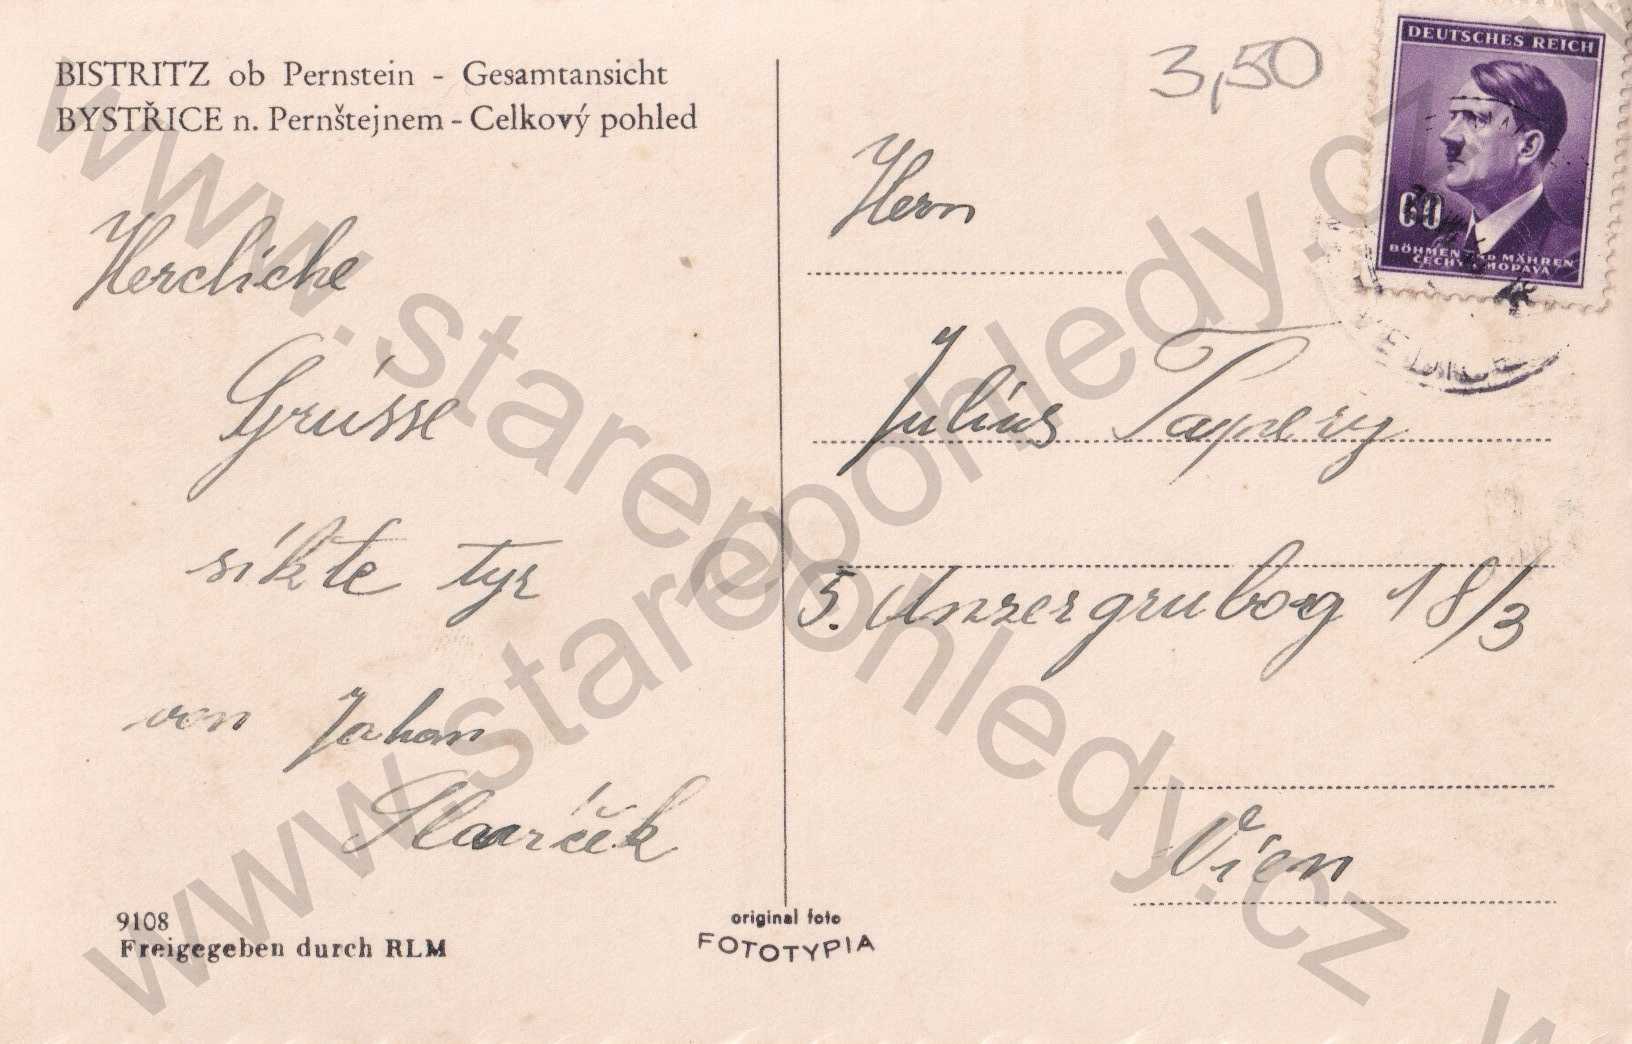 BISTRITZ ob Pernstein - Gesamtansicht
BYSTŘICE n. Pernštejnem - Celkový pohled
3,50
DEUTSCHES REICH
60
BÖHMEN UND MÄHREN
ČECHY A MORAVA
Herrn
Hercliche
Julius Tapery
Grüsse
síkte tyr
5. Unzergruborg 18/3
von Johan
Slaviček
Vien
9108
Freigegeben durch RLM
original foto
FOTOTYPIA
www.starepohledy.cz
www.starepohledy.cz